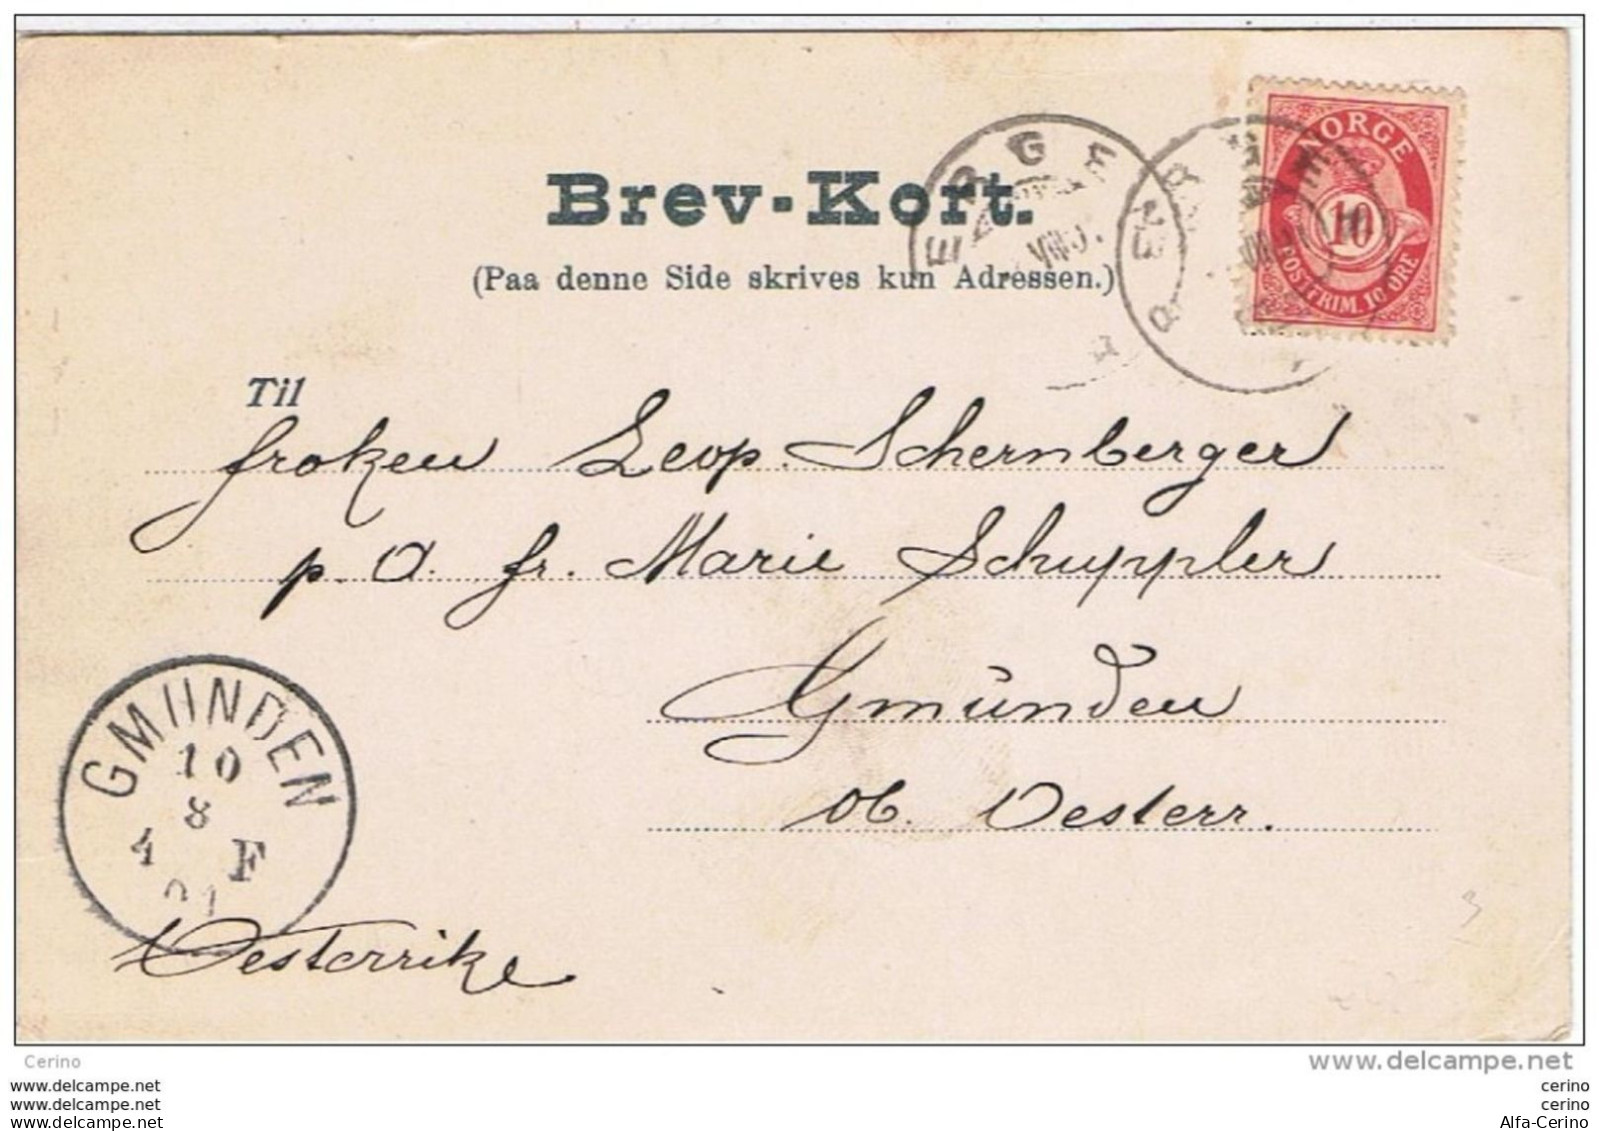 Brev-Kort.
(Paa denne Side skrives kun Adressen.)
NORGE
10
POSTFRIM. 10 ØRE
Til
froken Leop. Schernberger
p. A. fr. Marie Schuppler
Gmünden
ob. Oesterr.
GMUNDEN
10
8
4 F
01
Oesterrike
Cerino
www.delcampe.net
www.delcampe.net
www.delcampe.net
www.delcampe.net
cerino
cerino
Alfa-Cerino